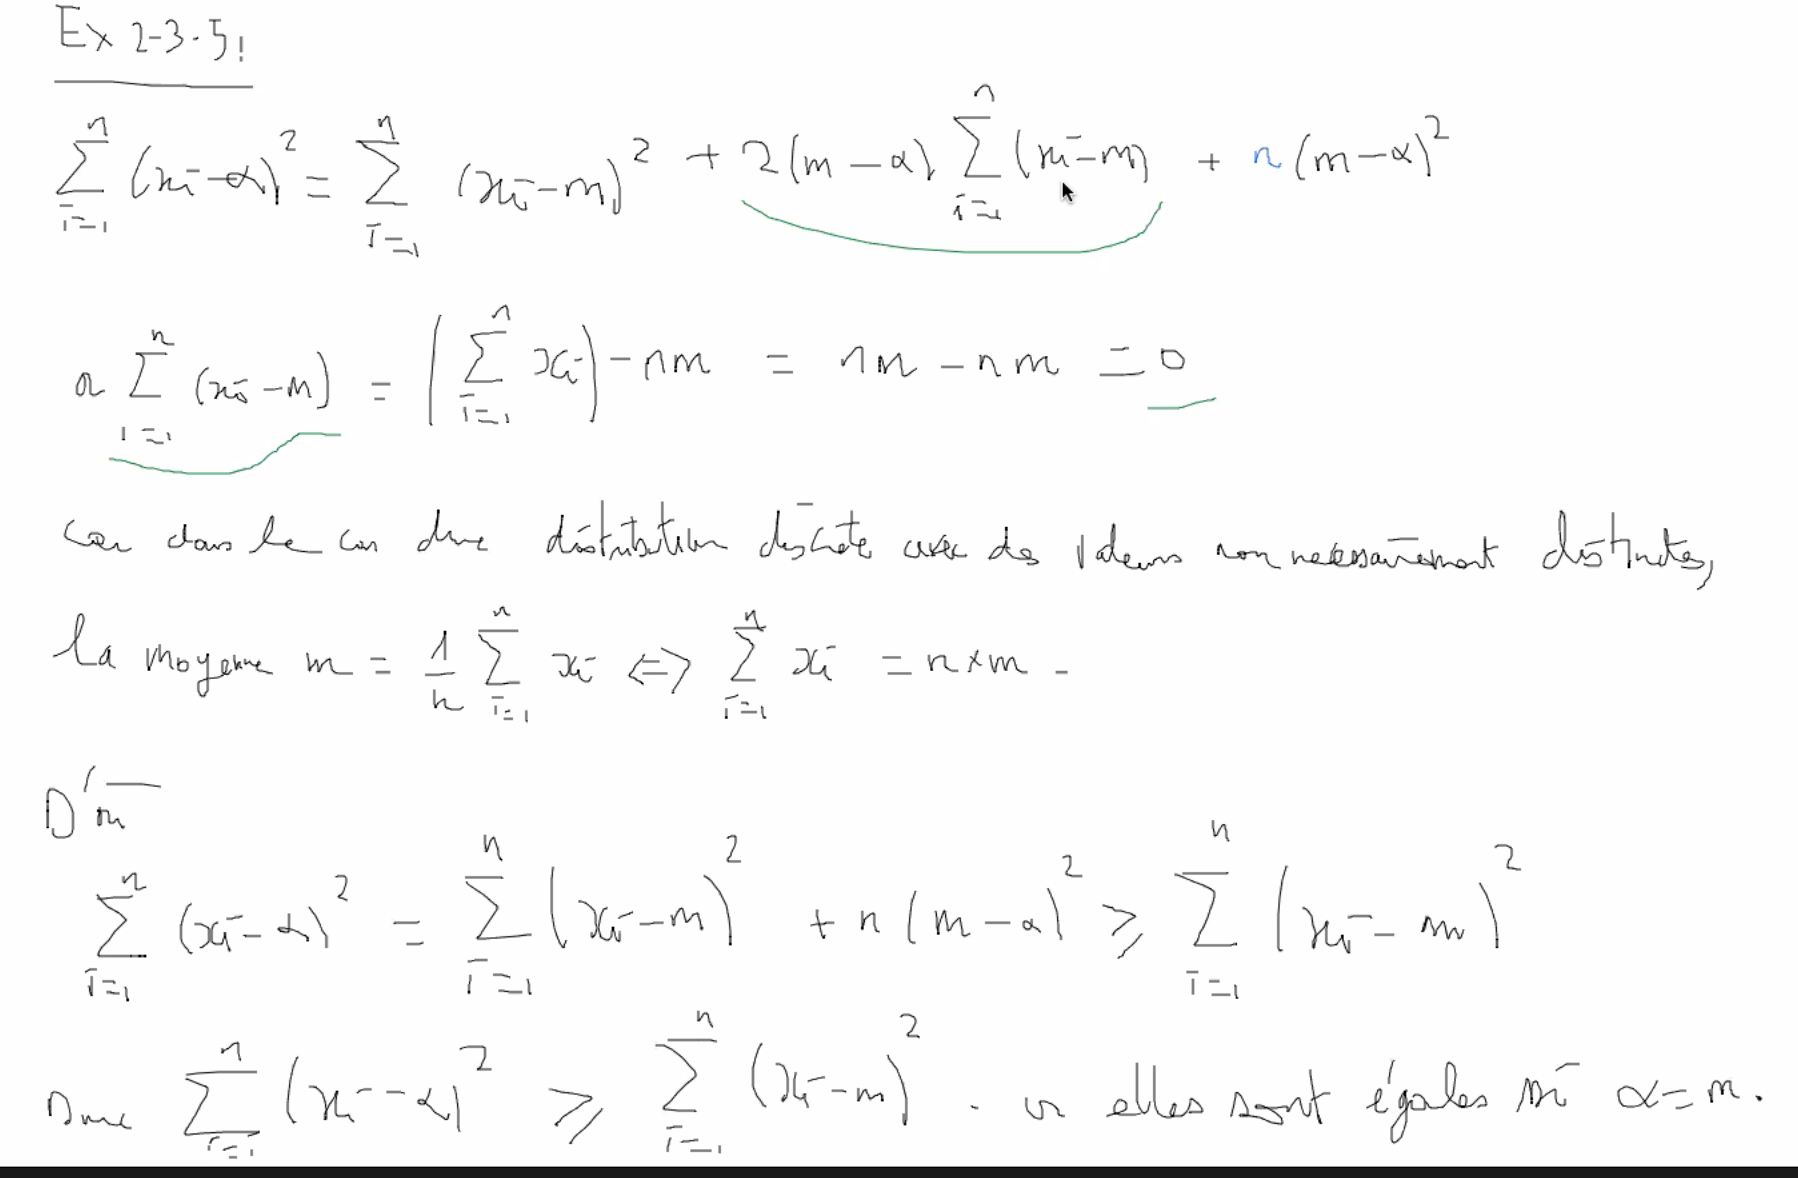 Ex 2-3-5:
∑_{i=1}^{n} (xi-α)² = ∑_{i=1}^{n} (xi-m)² + 2(m-α) ∑_{i=1}^{n} (xi-m) + n(m-α)²
or ∑_{i=1}^{n} (xi-m) = (∑_{i=1}^{n} xi) - nm = nm - nm = 0
car dans le cas d'une distribution discrète avec des valeurs non nécessairement distinctes,
la moyenne m = 1/n ∑_{i=1}^{n} xi <=> ∑_{i=1}^{n} xi = n×m.
D'où
∑_{i=1}^{n} (xi-α)² = ∑_{i=1}^{n} (xi-m)² + n(m-α)² ⩾ ∑_{i=1}^{n} (xi-m)²
Donc ∑_{i=1}^{n} (xi-α)² ⩾ ∑_{i=1}^{n} (xi-m)². elles sont égales si α=m.